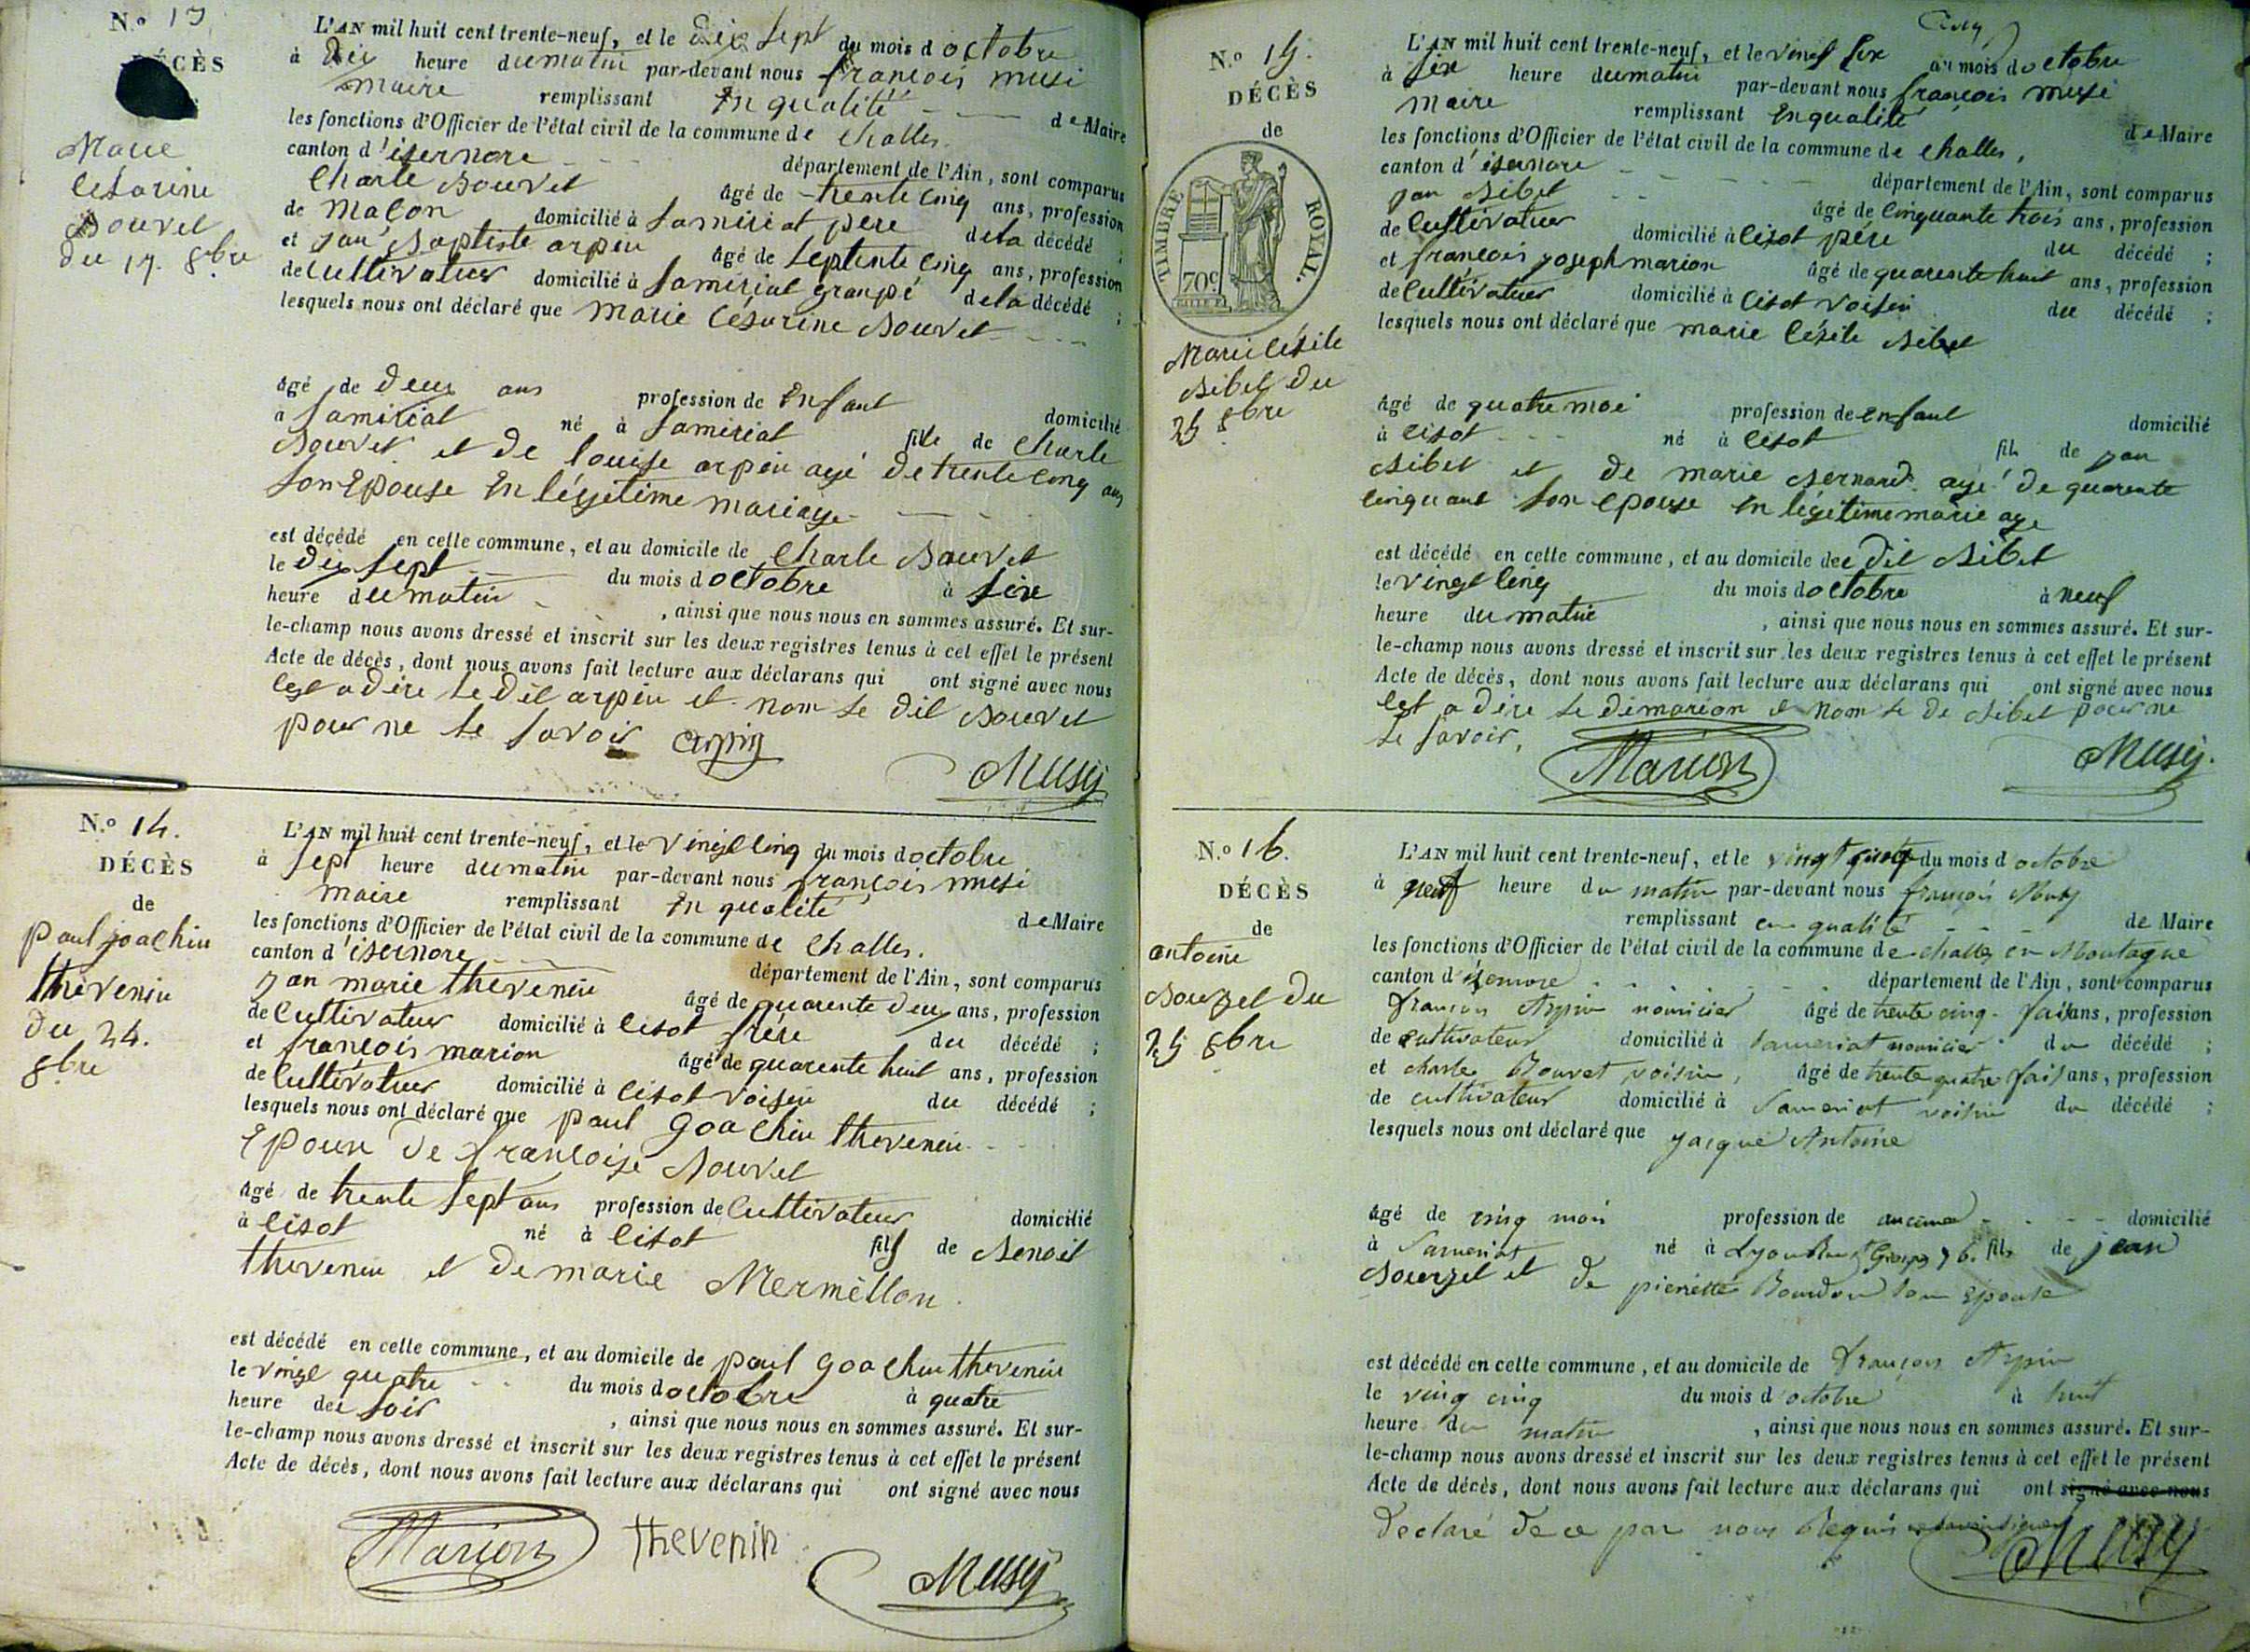 N.o 13
DÉCÈS
Marie
Césarine
Bouvet
du 17. 8bre
L'AN mil huit cent trente-neuf, et le dix sept du mois d octobre
à dix heure du matin par-devant nous françois musi
maire remplissant En qualité de Maire
les fonctions d'Officier de l'état civil de la commune de Challes.
canton d'isernore département de l'Ain, sont comparus
Charle Bouvet âgé de trente cinq ans, profession
de Maçon domicilié à Samériat père de la décédé ;
et jan Baptiste arpin âgé de septente cinq ans, profession
de Cultivateur domicilié à Samériat granpé de la décédé ;
lesquels nous ont déclaré que Marie Césarine Bouvet
âgé de deux ans profession de Enfant domicilié
à Samériat né à Samériat fille de Charle
Bouvet et de louise arpin agé de trente cinq ans
son Epouse En légitime mariage
est décédé en cette commune, et au domicile de Charle Bouvet
le dix sept du mois d octobre à six
heure du matin , ainsi que nous nous en sommes assuré. Et sur-
le-champ nous avons dressé et inscrit sur les deux registres tenus à cet effet le présent
Acte de décès, dont nous avons fait lecture aux déclarans qui ont signé avec nous
Cest a dire le dit arpin et nom le dit Bouvet
pour ne le savoir Arpin
Musy
N.o 14.
DÉCÈS
de
paul joachin
thevenin
du 24.
8bre
L'AN mil huit cent trente-neuf, et le vingt cinq du mois d octobre
à sept heure du matin par-devant nous françois musi
maire remplissant En qualité de Maire
les fonctions d'Officier de l'état civil de la commune de Challes.
canton d'isernore département de l'Ain, sont comparus
jan marie thevenin âgé de quarente deux ans, profession
de Cultivateur domicilié à Cisot frère du décédé ;
et françois marion âgé de quarente huit ans, profession
de Cultivateur domicilié à Cisot voisin du décédé ;
lesquels nous ont déclaré que paul goachin thevenin
Epoux de françoise Bouvet
âgé de trente sept ans profession de Cultivateur domicilié
à Cisot né à Cisot fils de Benoit
thevenin et de marie Mermillon
est décédé en cette commune, et au domicile de paul goachin thevenin
le vingt quatre du mois d octobre à quatre
heure du soir , ainsi que nous nous en sommes assuré. Et sur-
le-champ nous avons dressé et inscrit sur les deux registres tenus à cet effet le présent
Acte de décès, dont nous avons fait lecture aux déclarans qui ont signé avec nous
Marion thevenin
Musy
N.o 15.
DÉCÈS
de
TIMBRE ROYAL.
70c
Marie Césile
Bibet du
25 8bre
L'AN mil huit cent trente-neuf, et le vingt six au mois d octobre
à six heure du matin par-devant nous françois musi
Maire remplissant En qualité de Maire
les fonctions d'Officier de l'état civil de la commune de Challes,
canton d'isernore département de l'Ain, sont comparus
jan Bibet âgé de cinquante trois ans, profession
de Cultivateur domicilié à Cisot père du décédé ;
et françois joseph marion âgé de quarente huit ans, profession
de Cultivateur domicilié à Cisot voisin du décédé ;
lesquels nous ont déclaré que marie Césile Bibet
âgé de quatre moi profession de enfant domicilié
à Cisot né à Cisot fil de jan
Bibet et de marie Bernard agé de quarente
cinquant son epouse En légitime mariage
est décédé en cette commune, et au domicile de dit Bibet
le vingt cinq du mois d octobre à neuf
heure du matin , ainsi que nous nous en sommes assuré. Et sur-
le-champ nous avons dressé et inscrit sur les deux registres tenus à cet effet le présent
Acte de décès, dont nous avons fait lecture aux déclarans qui ont signé avec nous
Cest a dire le di marion et nom le de Bibet pour ne
le savoir,
Marion
Musy.
N.o 16.
DÉCÈS
de
antoine
Bouzet du
25 8bre
L'AN mil huit cent trente-neuf, et le vingt du mois d octobre
à neuf heure du matin par-devant nous françois Musy
remplissant en qualité de Maire
les fonctions d'Officier de l'état civil de la commune de challes en Montagne
canton d'isernore département de l'Ain, sont comparus
françois Arpin nouricier âgé de trente cinq ans, profession
de cultivateur domicilié à Sameriat nouricier du décédé ;
et charle Bouvet voisin, âgé de trente quatre ans, profession
de cultivateur domicilié à Sameriat voisin du décédé ;
lesquels nous ont déclaré que jacque Antoine
âgé de cinq moi profession de domicilié
à Sameriat né à Lyon 76. fils de jean
Bouzet et de pierrette Bourdon son Epouse
est décédé en cette commune, et au domicile de françois Arpin
le ving cinq du mois d octobre à huit
heure du matin , ainsi que nous nous en sommes assuré. Et sur-
le-champ nous avons dressé et inscrit sur les deux registres tenus à cet effet le présent
Acte de décès, dont nous avons fait lecture aux déclarans qui ont signé avec nous
declaré de ce par nous Requis
Musy